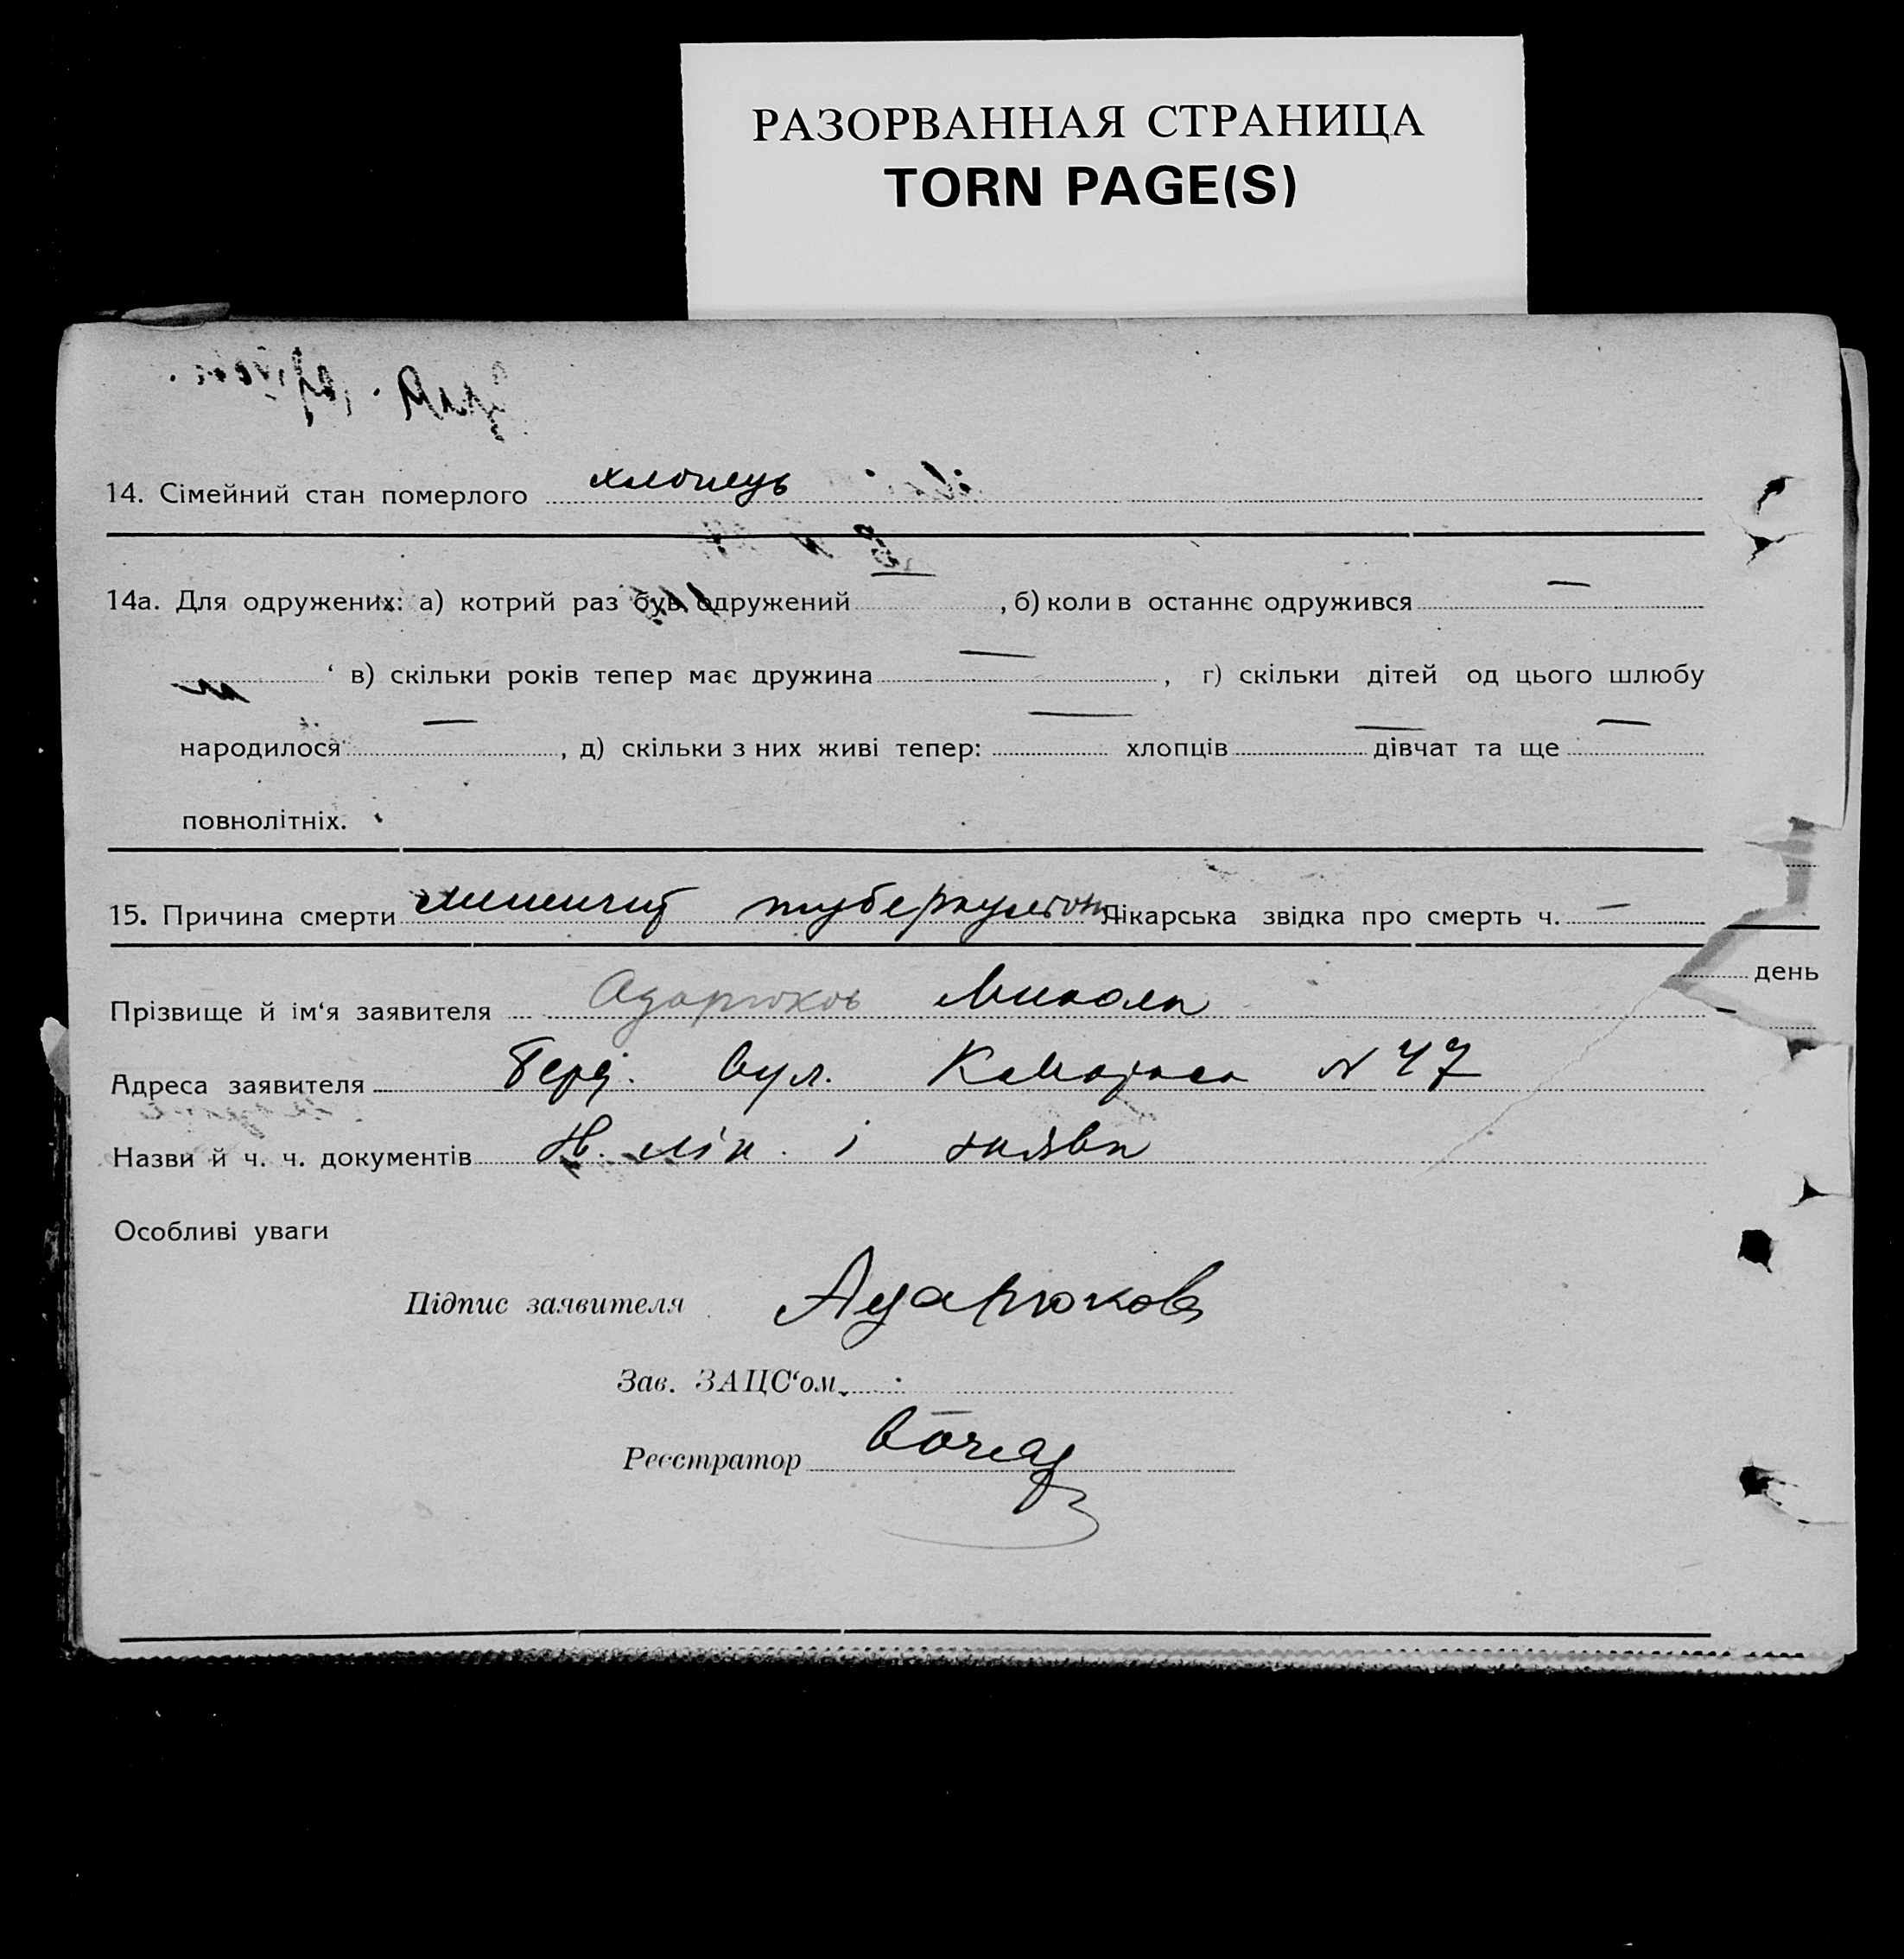 РАЗОРВАННАЯ СТРАНИЦА
TORN PAGE(S)
14. Сімейний стан померлого хлопець
14а. Для одружених: а) котрий раз був одружений — , б) коли в останнє одружився —
в) скільки років тепер має дружина — , г) скільки дітей од цього шлюбу
народилося — , д) скільки з них живі тепер: — хлопців — дівчат та ще —
повнолітніх.
15. Причина смерти туберкульоз Лікарська звідка про смерть ч. —
день
Прізвище й ім‘я заявителя Адарюков Микола
Адреса заявителя Берд. вул. N 47
Назви й ч. ч. документів і заява
Особливі уваги
Підпис заявителя Адарюков
Зав. ЗАЦС‘ом
Реєстратор